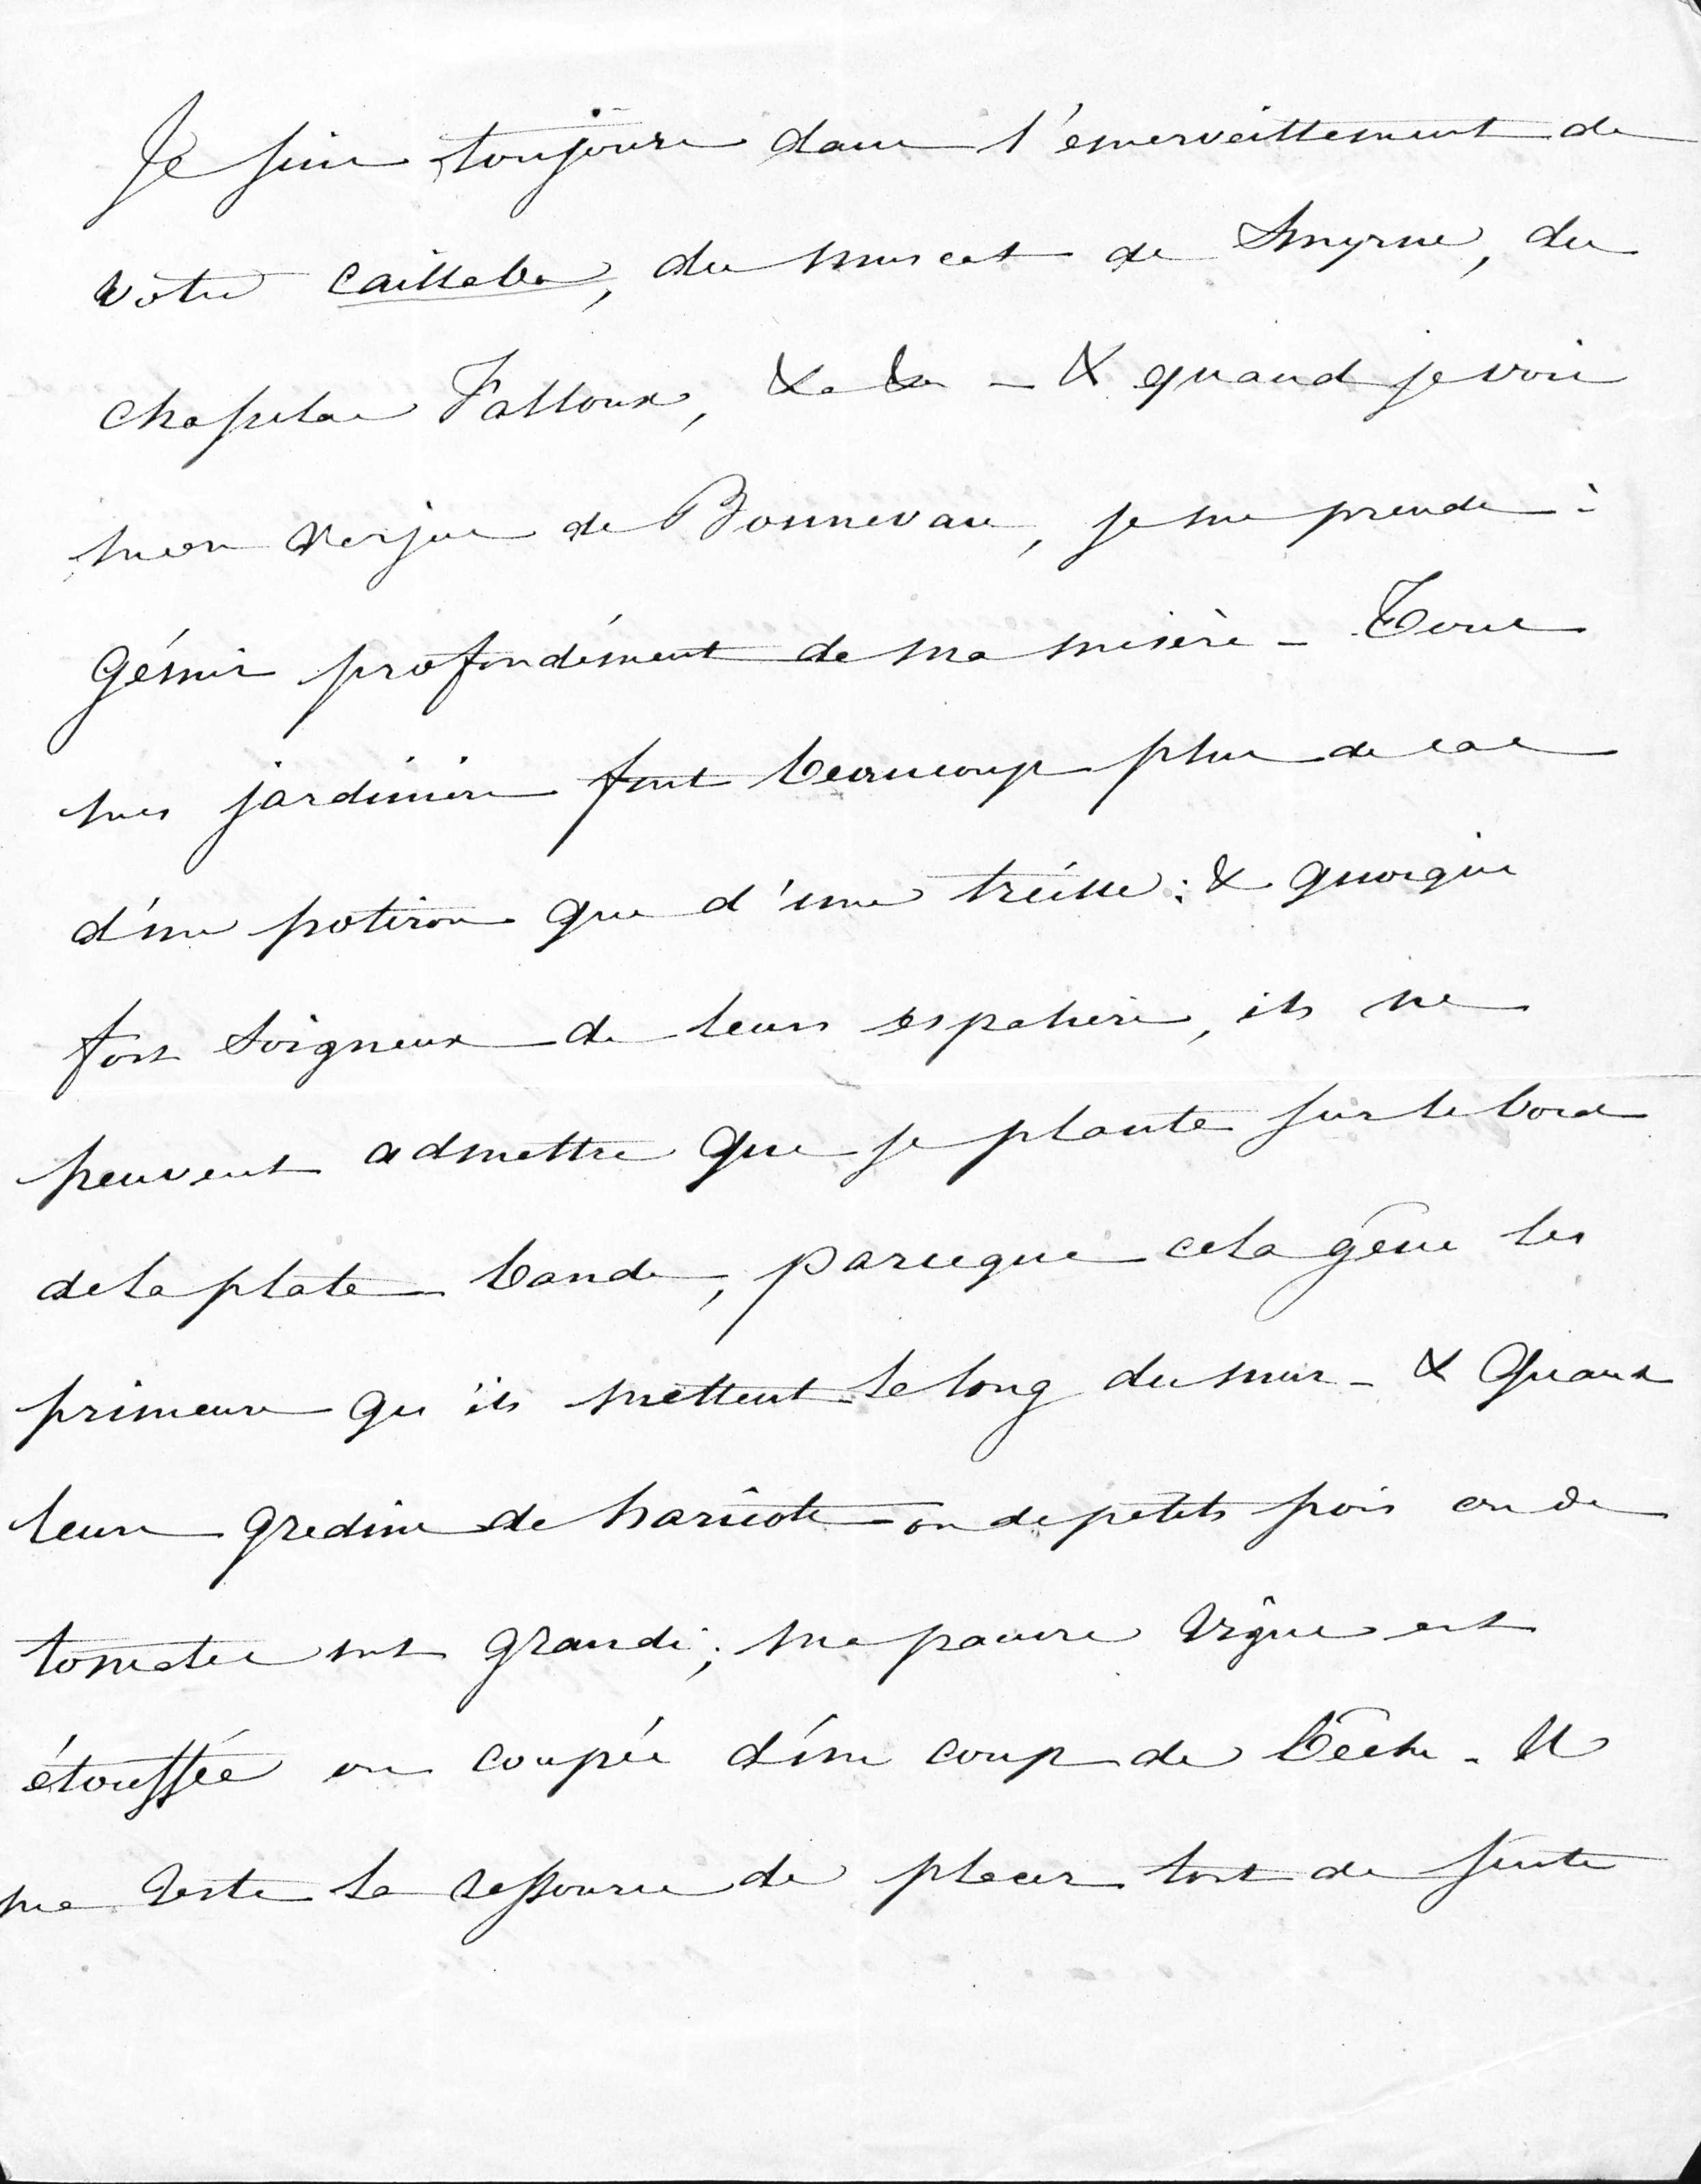 Je suis toujours dans l'émerveillement de
votre caillaba, du muscat de Smyrne, du
chasselas Falloux, &a &a – & quand je vois
mon verjus de Bonnevau, je me prends à
gémir profondément de ma misère – Tous
mes jardiniers font beaucoup plus de cas
d'un potiron que d'une treille : & quoique
fort soigneux de leurs espaliers, ils ne
peuvent admettre que je plante sur le bord
de la plate bande, parceque cela gêne les
primeurs qu'ils mettent le long du mur – & quand
leurs gredins de haricots ou de petits pois ou de
tomates ont grandi ; ma pauvre vigne est
étouffée ou coupée d'un coup de bêche – Il
me reste la ressource de placer tout de suite